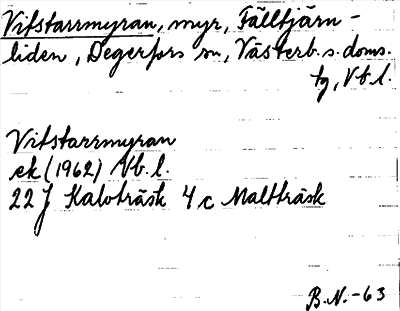 Vitstarrmyran, myr, Fälltjärn-
liden, Degerfors sn, Västerb. s. doms.
tg, Vb. l.
Vitstarrmyran
ek (1962) Vb. l.
22 J Kalvträsk 4 c Maltträsk
B.N. -63